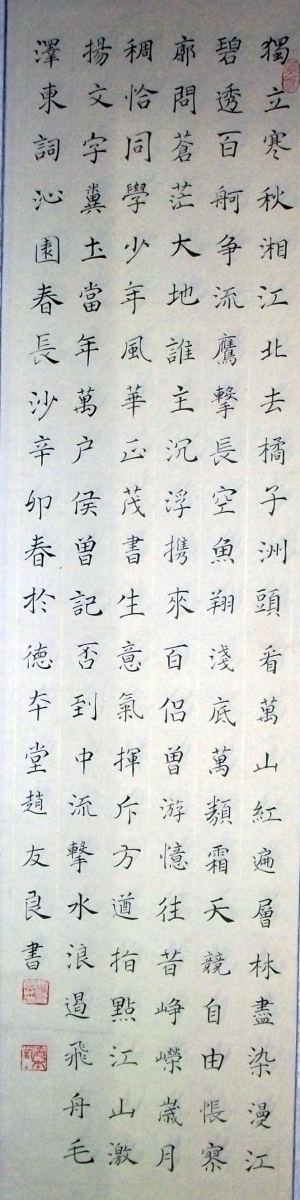 獨立寒秋湘江北去橘子洲頭看萬山紅遍層林盡染漫江
碧透百舸争流鷹擊長空魚翔淺底萬類霜天競自由悵寥
廓問蒼茫大地誰主沉浮携來百侣曾游憶往昔崢嶸歲月
稠恰同學少年風華正茂書生意氣揮斥方遒指點江山激
揚文字糞土當年萬户侯曾記否到中流擊水浪遏飛舟毛
澤東詞沁園春長沙辛卯春於德本堂趙友良書